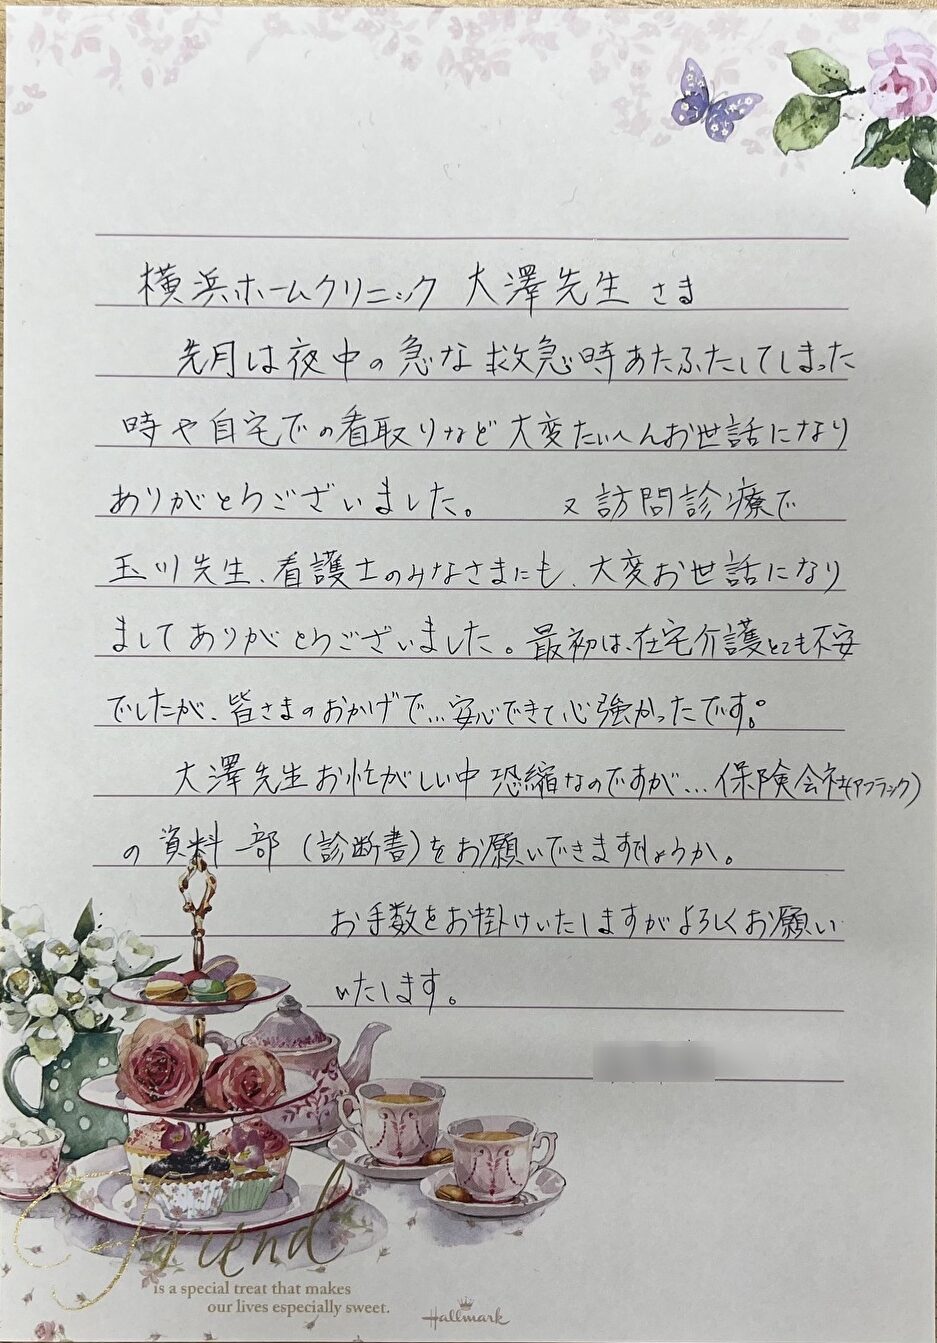 横浜ホームクリニック 大澤先生 さま
先月は夜中の急な救急時あたふたしてしまった
時や自宅での看取りなど大変たいへんお世話になり
ありがとうございました。 又訪問診療で
玉川先生、看護士のみなさまにも、大変お世話になり
ましてありがとうございました。最初は、在宅介護とても不安
でしたが、皆さまのおかげで…安心できて心強かったです。
大澤先生お忙がしい中恐縮なのですが…保険会社(アフラック)
の資料一部(診断書)をお願いできますでしょうか。
お手数をお掛けいたしますがよろしくお願い
いたします。
Friend
is a special treat that makes
our lives especially sweet.
Hallmark